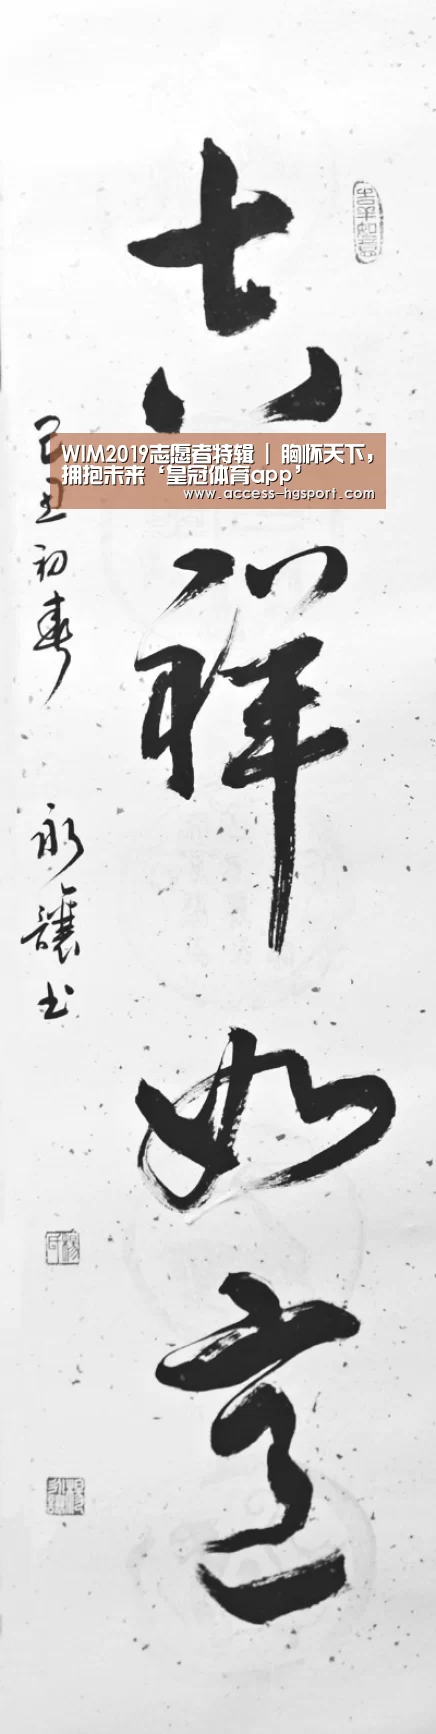 吉祥如意
己丑初春 永讓书
吉羊如意
WIM2019志愿者特辑 | 胸怀天下，
拥抱未来‘皇冠体育app’
www.access-hgsport.com